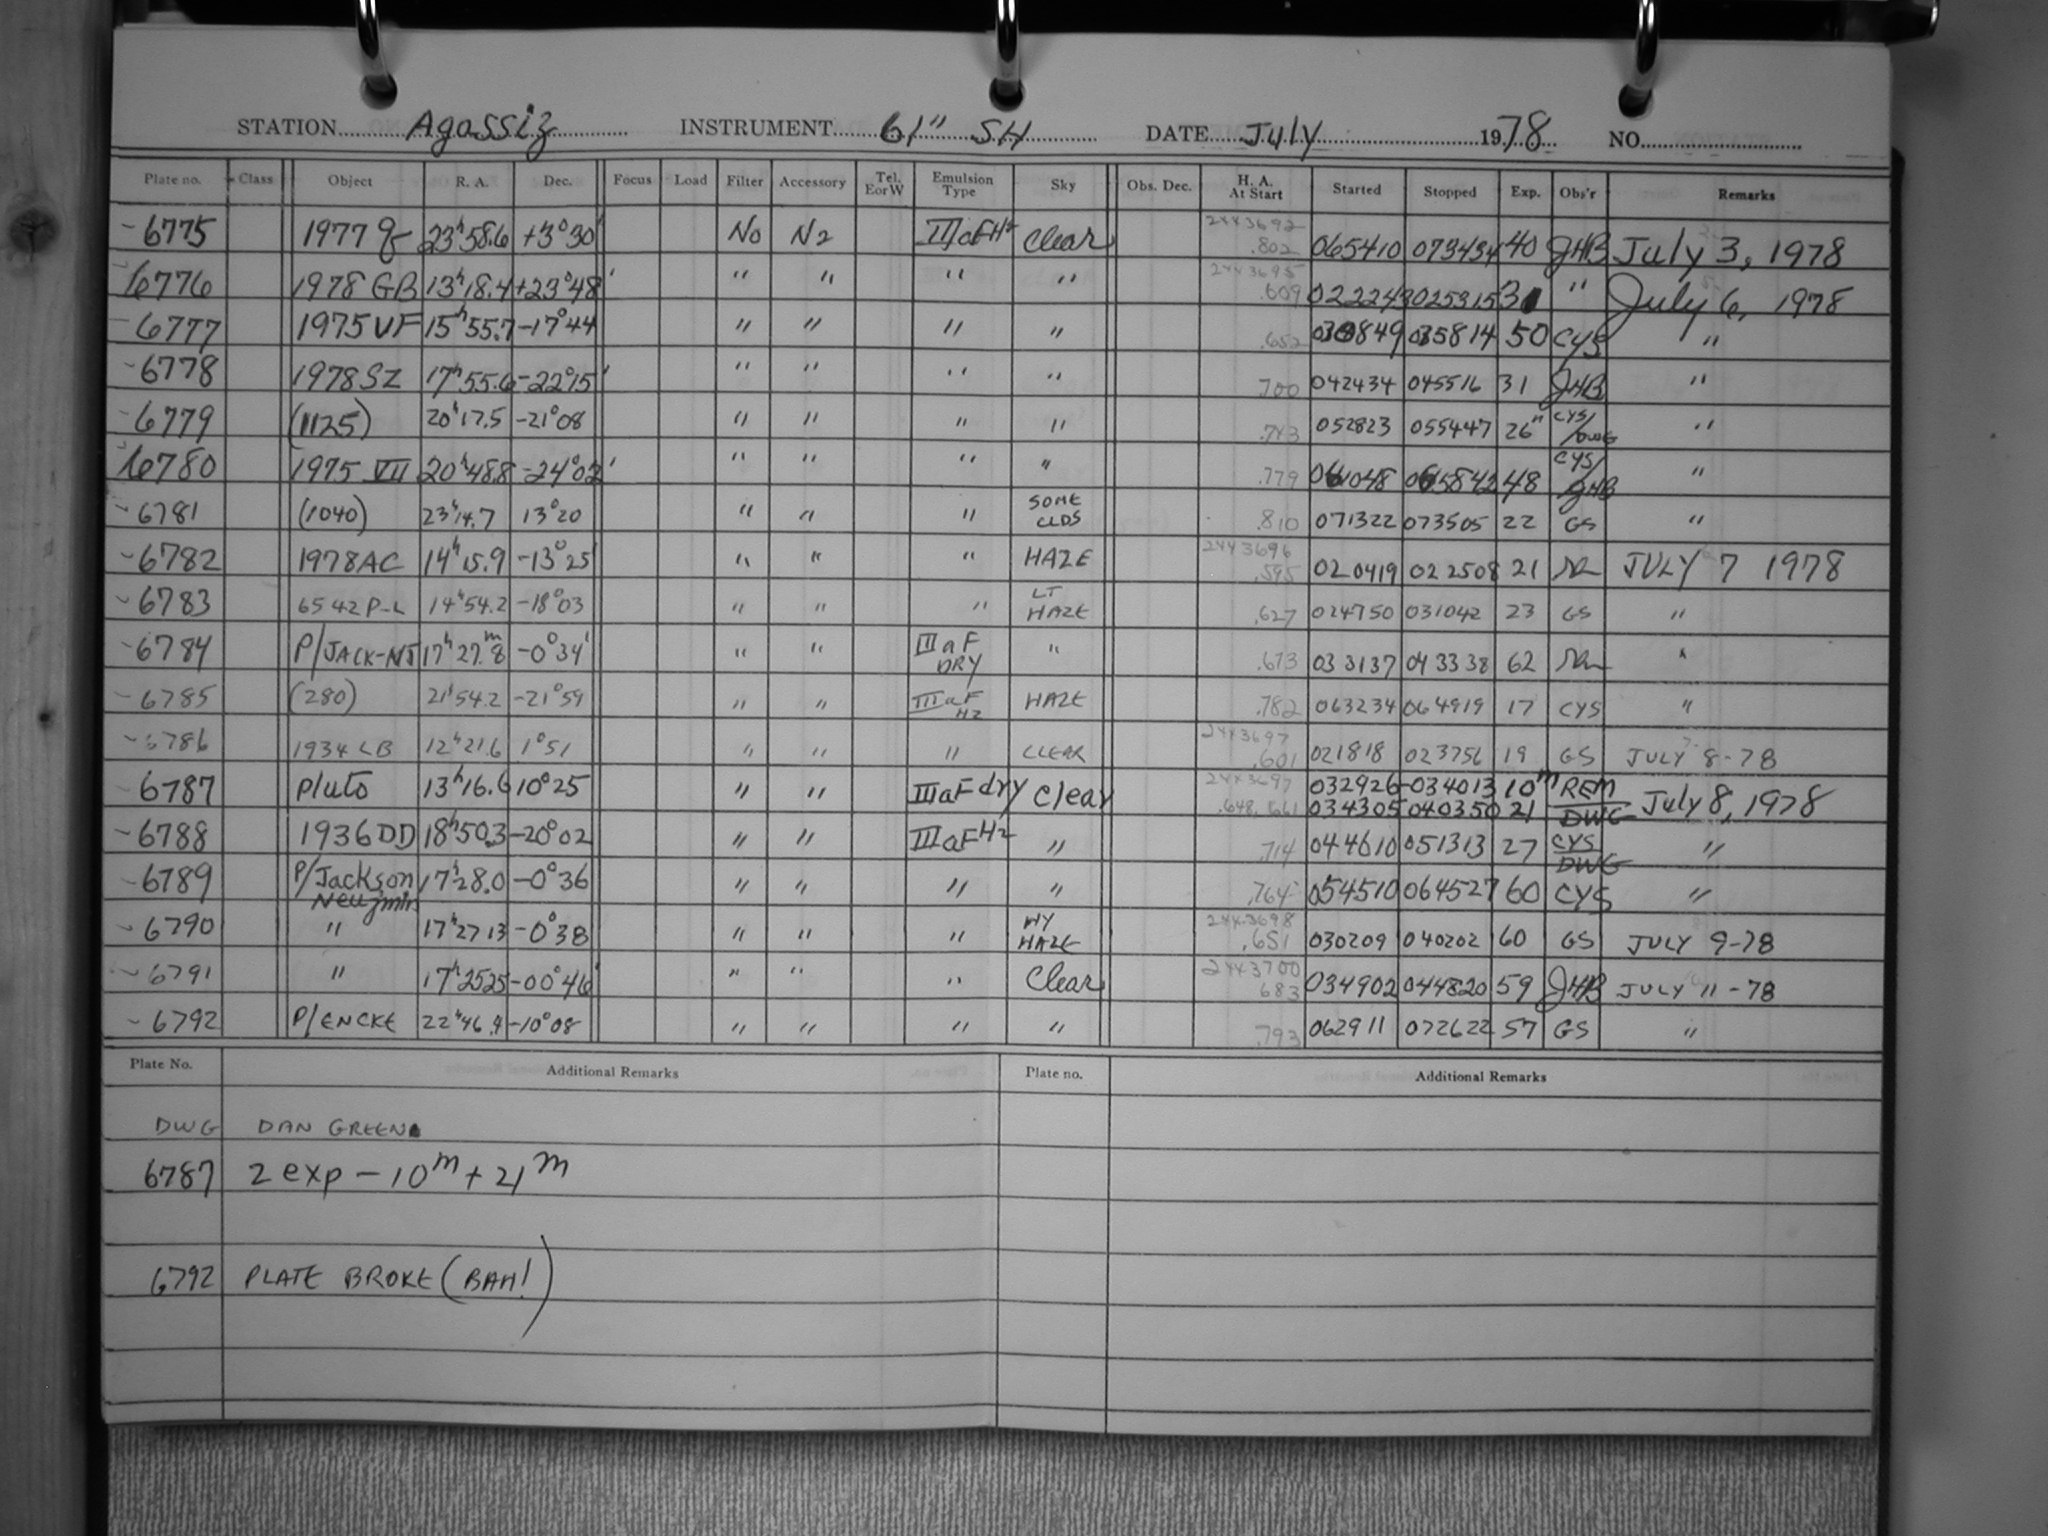 STATION Agassiz INSTRUMENT 61" SH DATE July 1978 NO.
Plate no. Class Object R. A. Dec. Focus Load Filter Accessory Tel. E or W Emulsion Type Sky Obs. Dec. H. A. At Start Started Stopped Exp. Obs'r Remarks
6775 1977 23h58.6 +3°30' No N2 IIIaFH2 Clear 2443692 .802 065410 073434 40 JHB July 3, 1978
6776 1978 GB 13h18.4 +23°48' " " " " 2443695 .609 022243 025315 " July 6, 1978
6777 1975 VF 15h55.7 -17°44 " " " " .652 030849 035814 50 CYS "
6778 1978 SZ 17h55.6 -22°15' " " " " .700 042434 045516 31 JHB "
6779 (1125) 20h17.5 -21°08 " " " " .743 052823 055447 26m CYS/DWG "
6780 1975 20h48.8 -24°02' " " " " .779 061048 065842 48 CYS/JHB "
6781 (1040) 23h14.7 13°20 " " " SOME CLDS .810 071322 073505 22 GS "
6782 1978AC 14h15.9 -13°25' " " " HAZE 2443696 .595 020419 022508 21 JULY 7 1978
6783 6542 P-L 14h54.2 -18°03 " " " LT HAZE .627 024750 031042 23 GS "
6784 P/JACK-NJ 17h27.m8 -0°34' " " IIIaF DRY " .673 033137 043338 62 "
6785 (280) 21h54.2 -21°59 " " IIIaF H2 HAZE .782 063234 064919 17 CYS "
6786 1934 LB 12h21.6 1°51 " " " CLEAR 2443697 .601 021818 023756 19 GS JULY 8-78
6787 Pluto 13h16.6 10°25 " " IIIaF dry Clear 2443697 .648, .661 032926-034013 10m REM
034305 040350 21 DWG July 8, 1978
6788 1936 DD 18h50.3 -20°02 " " IIIaFH2 " .714 044610 051313 27 CYS DWG "
6789 P/Jackson Neujmin 17h28.0 -0°36 " " " " .764 054510 064527 60 CYS "
6790 " 17h27 13 -0°38 " " " HAZE 2443698 .651 030209 040202 60 GS JULY 9-78
6791 " 17h2525 -00°46' " " " Clear 2443700 683 034902 044820 59 JHB JULY 11-78
6792 P/ENCKE 22h46.9 -10°08 " " " " .793 062911 072622 57 GS "
Plate No. Additional Remarks Plate no. Additional Remarks
DWG DAN GREEN
6787 2 exp - 10m + 21m
6792 PLATE BROKE (BAH!)